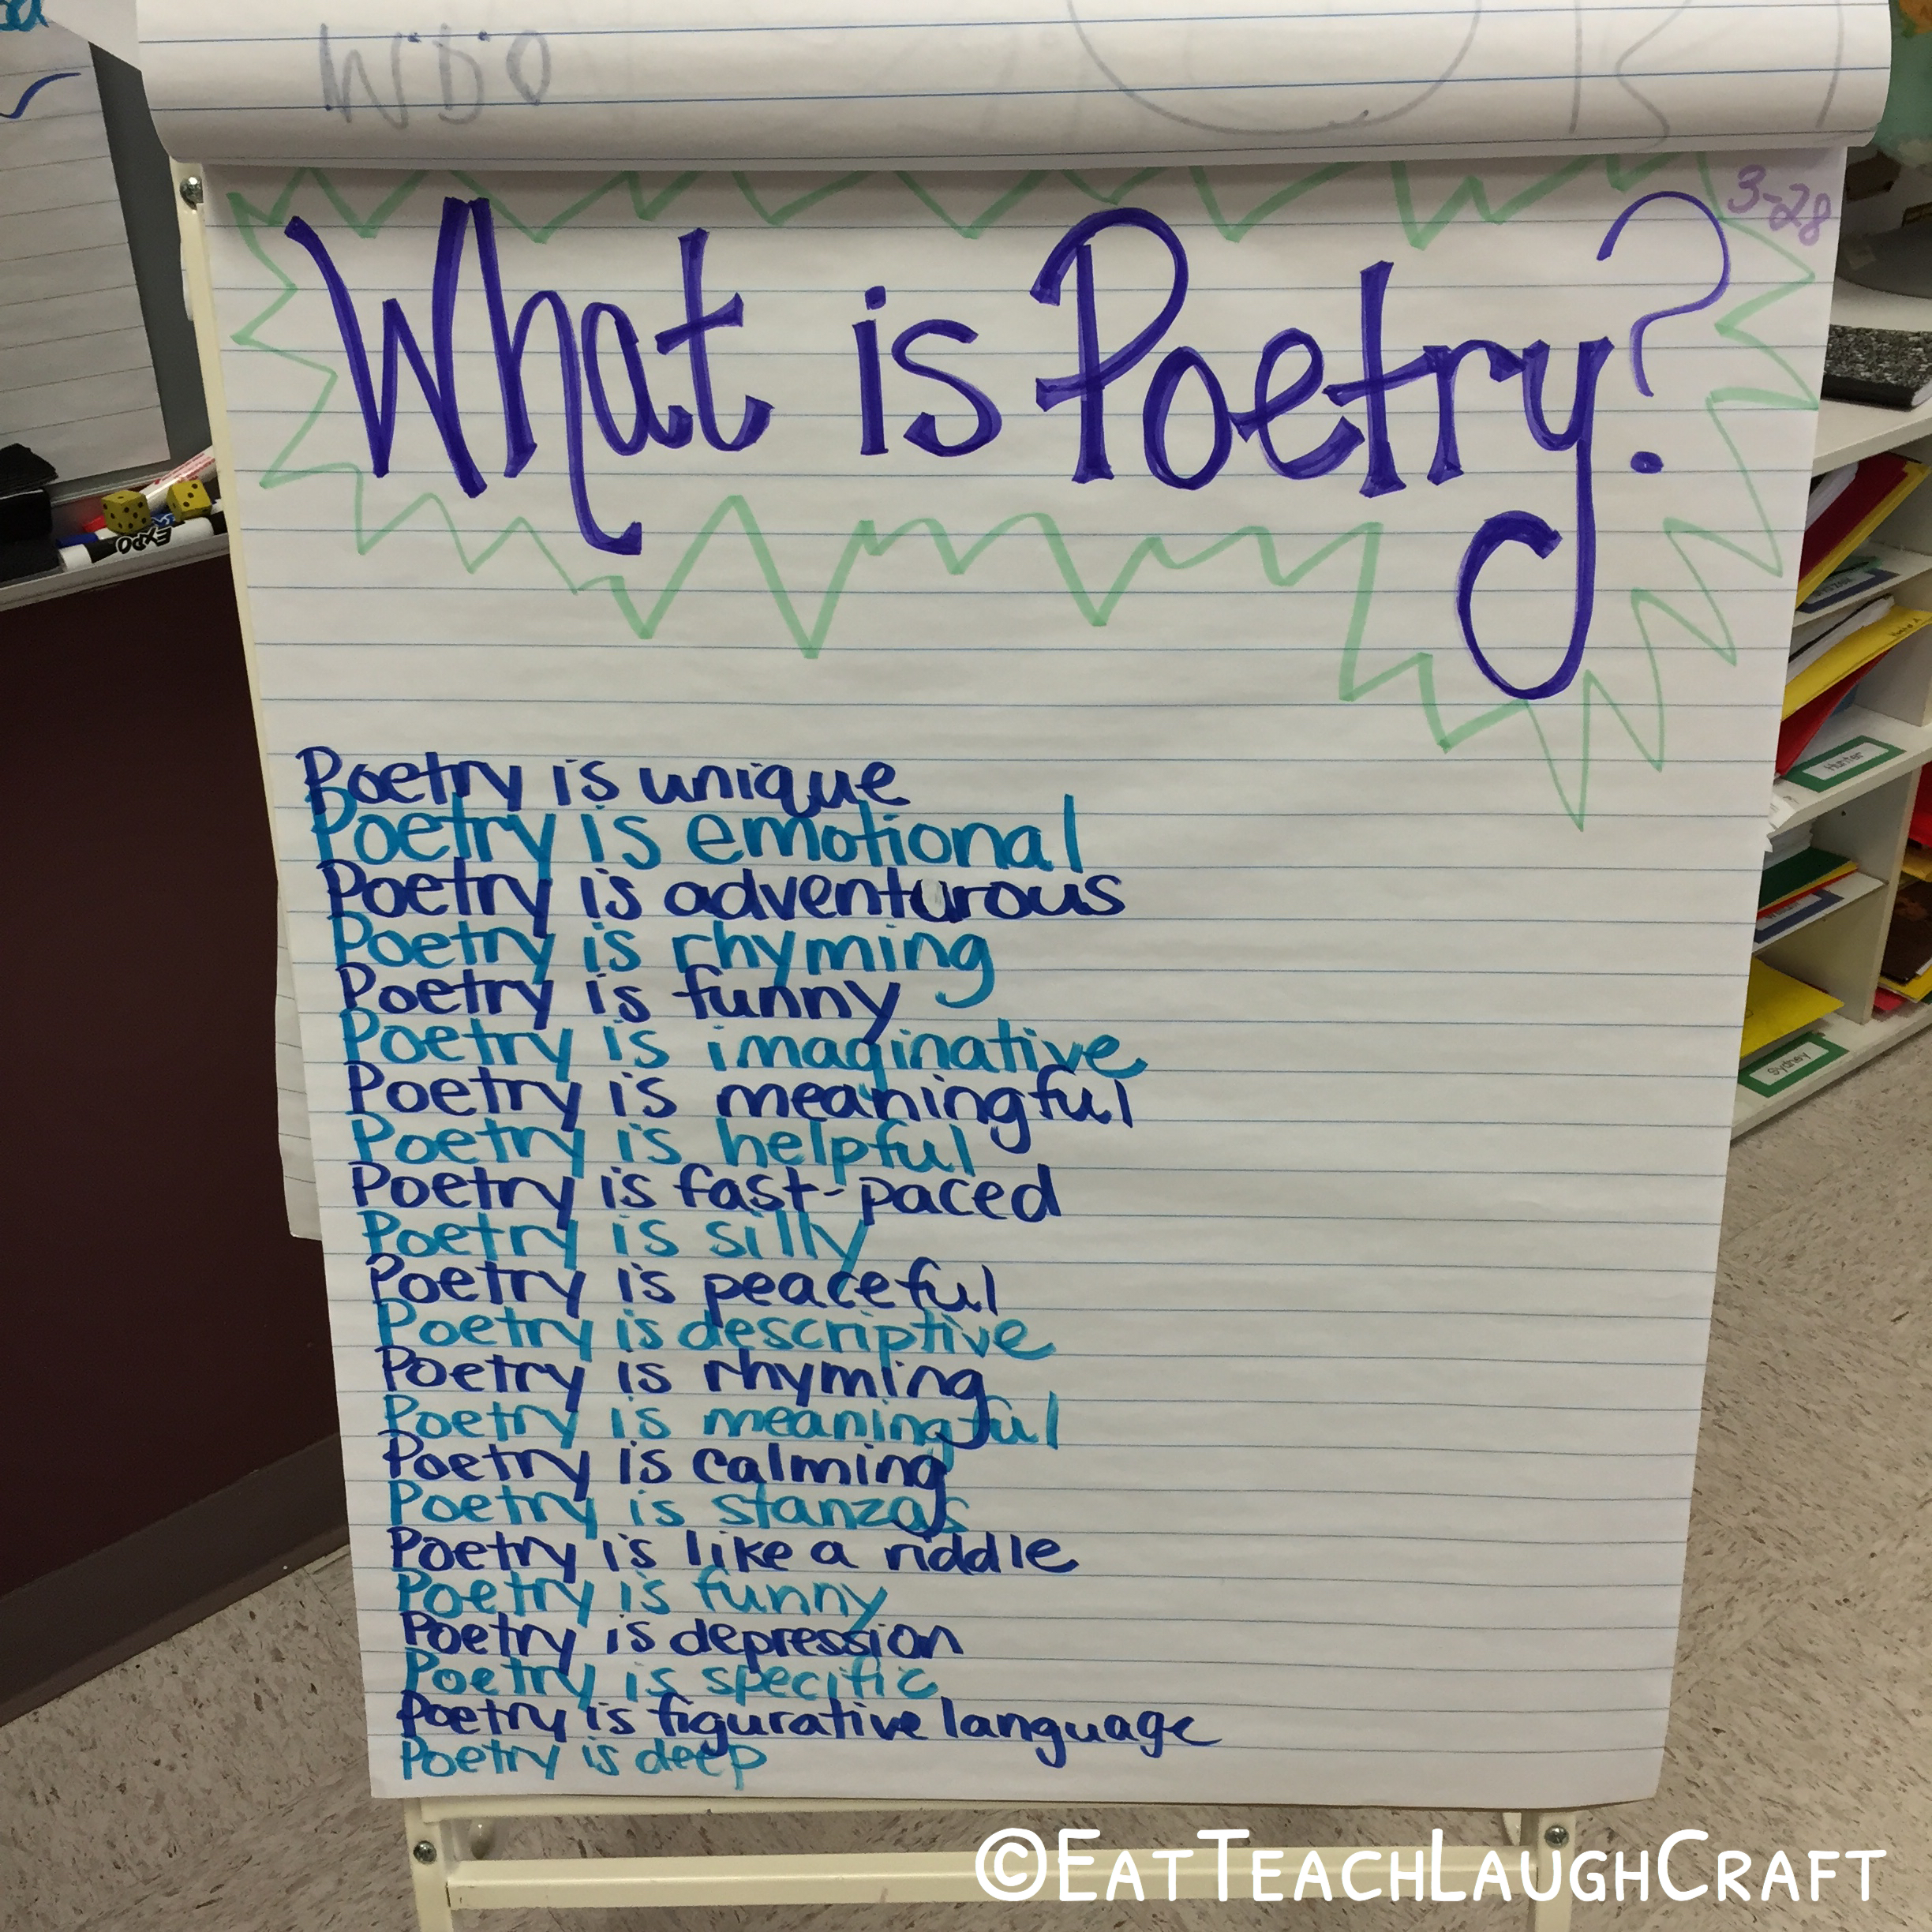 3-28
What is Poetry?
Poetry is unique
Poetry is emotional
Poetry is adventurous
Poetry is rhyming
Poetry is funny
Poetry is imaginative
Poetry is meaningful
Poetry is helpful
Poetry is fast-paced
Poetry is silly
Poetry is peaceful
Poetry is descriptive
Poetry is rhyming
Poetry is meaningful
Poetry is calming
Poetry is stanzas
Poetry is like a riddle
Poetry is funny
Poetry is depression
Poetry is specific
Poetry is figurative language
Poetry is deep
EXPO
Hunter
Sydney
©EatTeachLaughCraft